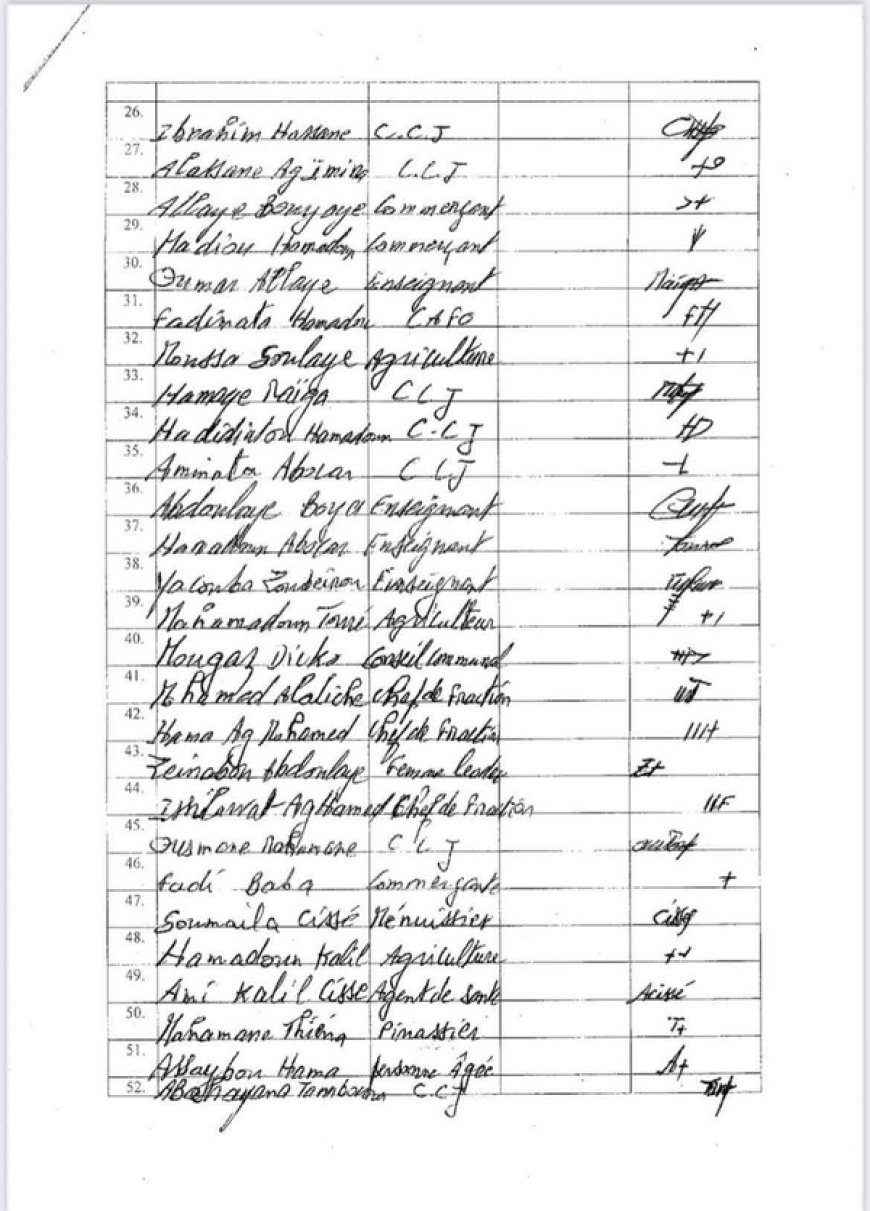 26. Ibrahim Hassane C.C.J
27. Alassane Ag C.C.J
28. Allaye Bouyaye Commerçant
29. Madiou Hamadoun Commerçant
30. Oumar Allaye Enseignant Maïga
31. Fadimata Hamadou CAFO FH
32. Moussa Soulaye Agriculture +1
33. Hamaye Maïga CCJ
34. Hadidiatou Hamadoun C-CJ HD
35. Aminata Abocar CCJ
36. Abdoulaye Boya Enseignant
37. Hamadoun Abocar Enseignant
38. Yacouba Zoubeirou Einseignant
39. Mahamadoun Touré Agriculteur +1
40. Mougaz Dicko Conseil Communal
41. Mohamed Alaliche Chef de Fraction
42. Hama Ag Mohamed Chef de Fraction IIII+
43. Zeinabou Abdoulaye Femme leader Z+
44. Ag Hamed Chef de Fraction IIF
45. Ousmane Mahamane CCJ
46. Fadi Baba Commerçante +
47. Soumaila Cissé Ménuissier Cissé
48. Hamadoun Kalil Agriculture
49. Ami Kalil Cisse Agent de santé Acissé
50. Mahamane Thiéna Pinassier T+
51. Assaybou Hama personne Âgée A+
52. Tamboura C.CJ